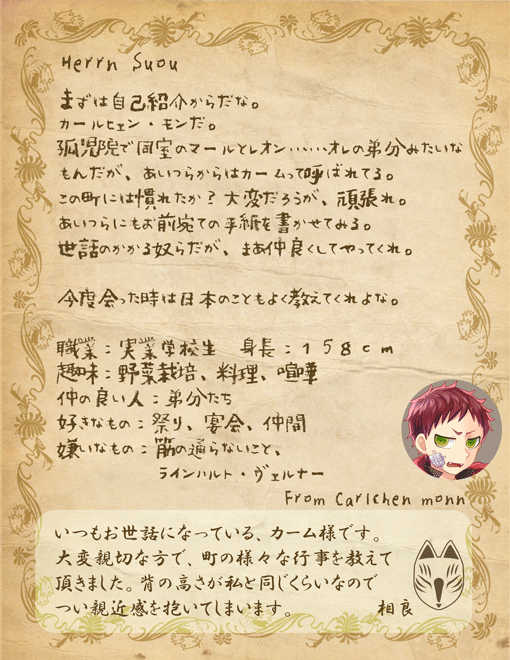 Herrn Suou
まずは自己紹介からだな。
カールヒェン・モンだ。
孤児院で同室のマールとレオン……オレの弟分みたいな
もんだが、あいつらからはカームって呼ばれてる。
この町には慣れたか？大変だろうが、頑張れ。
あいつらにもお前宛ての手紙を書かせてみる。
世話のかかる奴らだが、まあ仲良くしてやってくれ。
今度会った時は日本のこともよく教えてくれよな。
職業：実業学校生　身長：１５８ｃｍ
趣味：野菜栽培、料理、喧嘩
仲の良い人：弟分たち
好きなもの：祭り、宴会、仲間
嫌いなもの：筋の通らないこと、
ラインハルト・ヴェルナー
From Carlchen monn
いつもお世話になっている、カーム様です。
大変親切な方で、町の様々な行事を教えて
頂きました。背の高さが私と同じくらいなので
つい親近感を抱いてしまいます。　相良